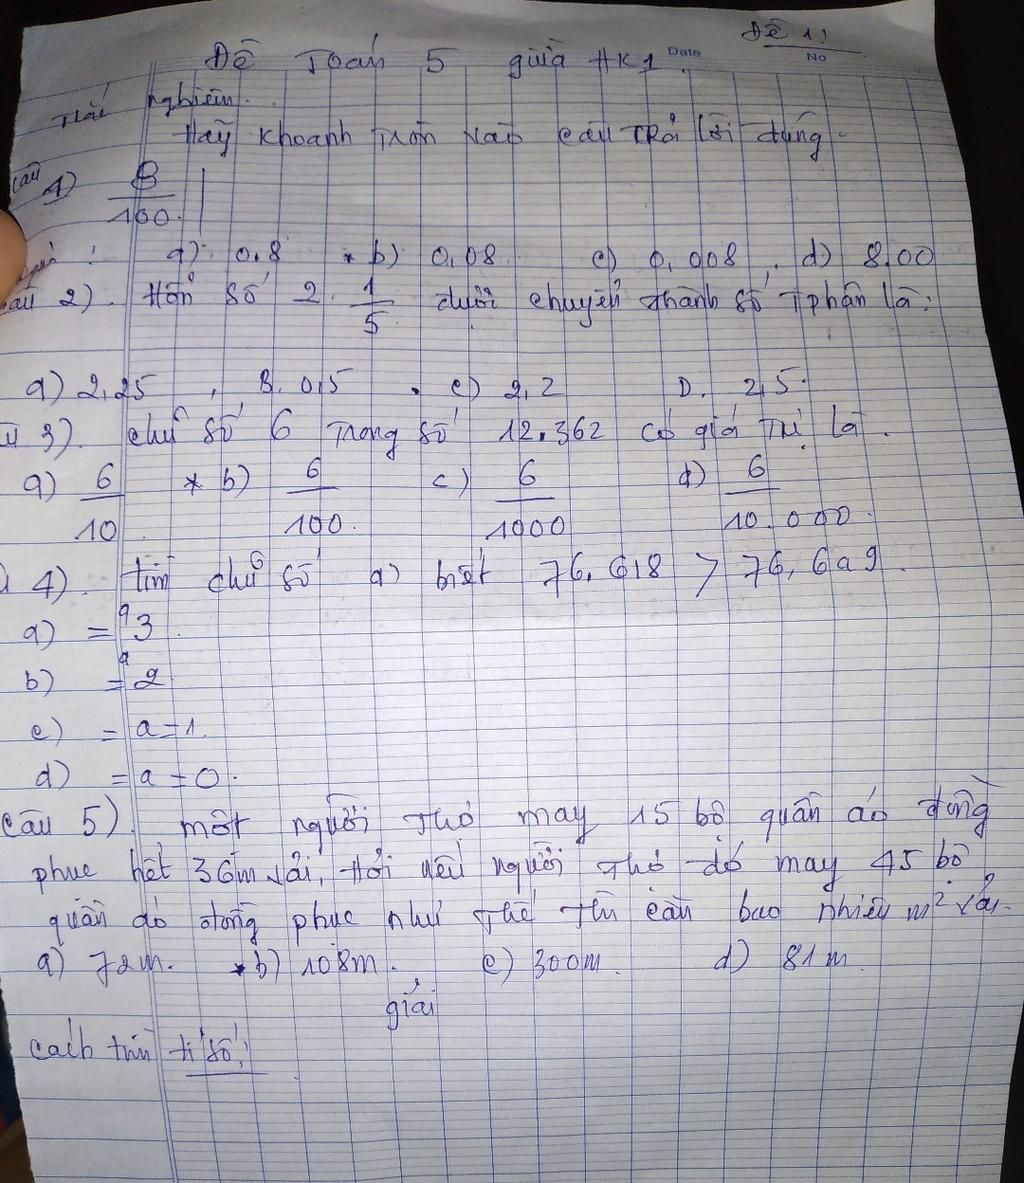 Đề 1:
Date
No
Đề Toán 5 giữa HK1
Trắc nghiệm.
Hãy khoanh tròn vào câu trả lời đúng.
Câu 1) 8/100
quả: a) 0,8 * b) 0,08 c) 0,008 . d) 8,00
Câu 2). Hỗn số 2 1/5 được chuyển thành số Tphân là:
a) 2,25 , B. 0,5 . c) 2,2 D. 2,5.
3). chữ số 6 Trong số 12,362 có giá Trị là.
a) 6/10 * b) 6/100. c) 6/1000 d) 6/10.000.
4). tìm chữ số a) biết 76,618 > 76,6a9.
a) = a 3.
b) = a 2
c) = a = 1.
d) = a = 0.
Câu 5) một người thợ may 15 bộ quần áo đồng
phục hết 36m vải, Hỏi nếu người thợ đó may 45 bộ
quần áo đồng phục như thế thì cần bao nhiêu m² vải.
a) 72m. * b) 108m. c) 300m. d) 81m.
giải
cách tìm tỉ số: